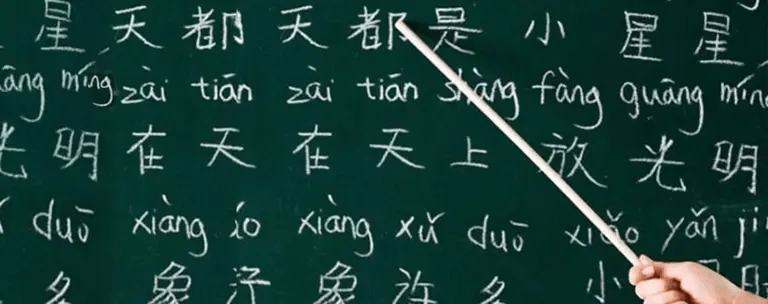 星 天 都 天 都 是 小 星 星
āng míng zài tiān zài tiān shàng fàng guāng mín
光 明 在 天 在 天 上 放 光 明
duō xiàng ío xiàng xǔ duō xiǎo yǎn ji
多 象 象 许 多 小